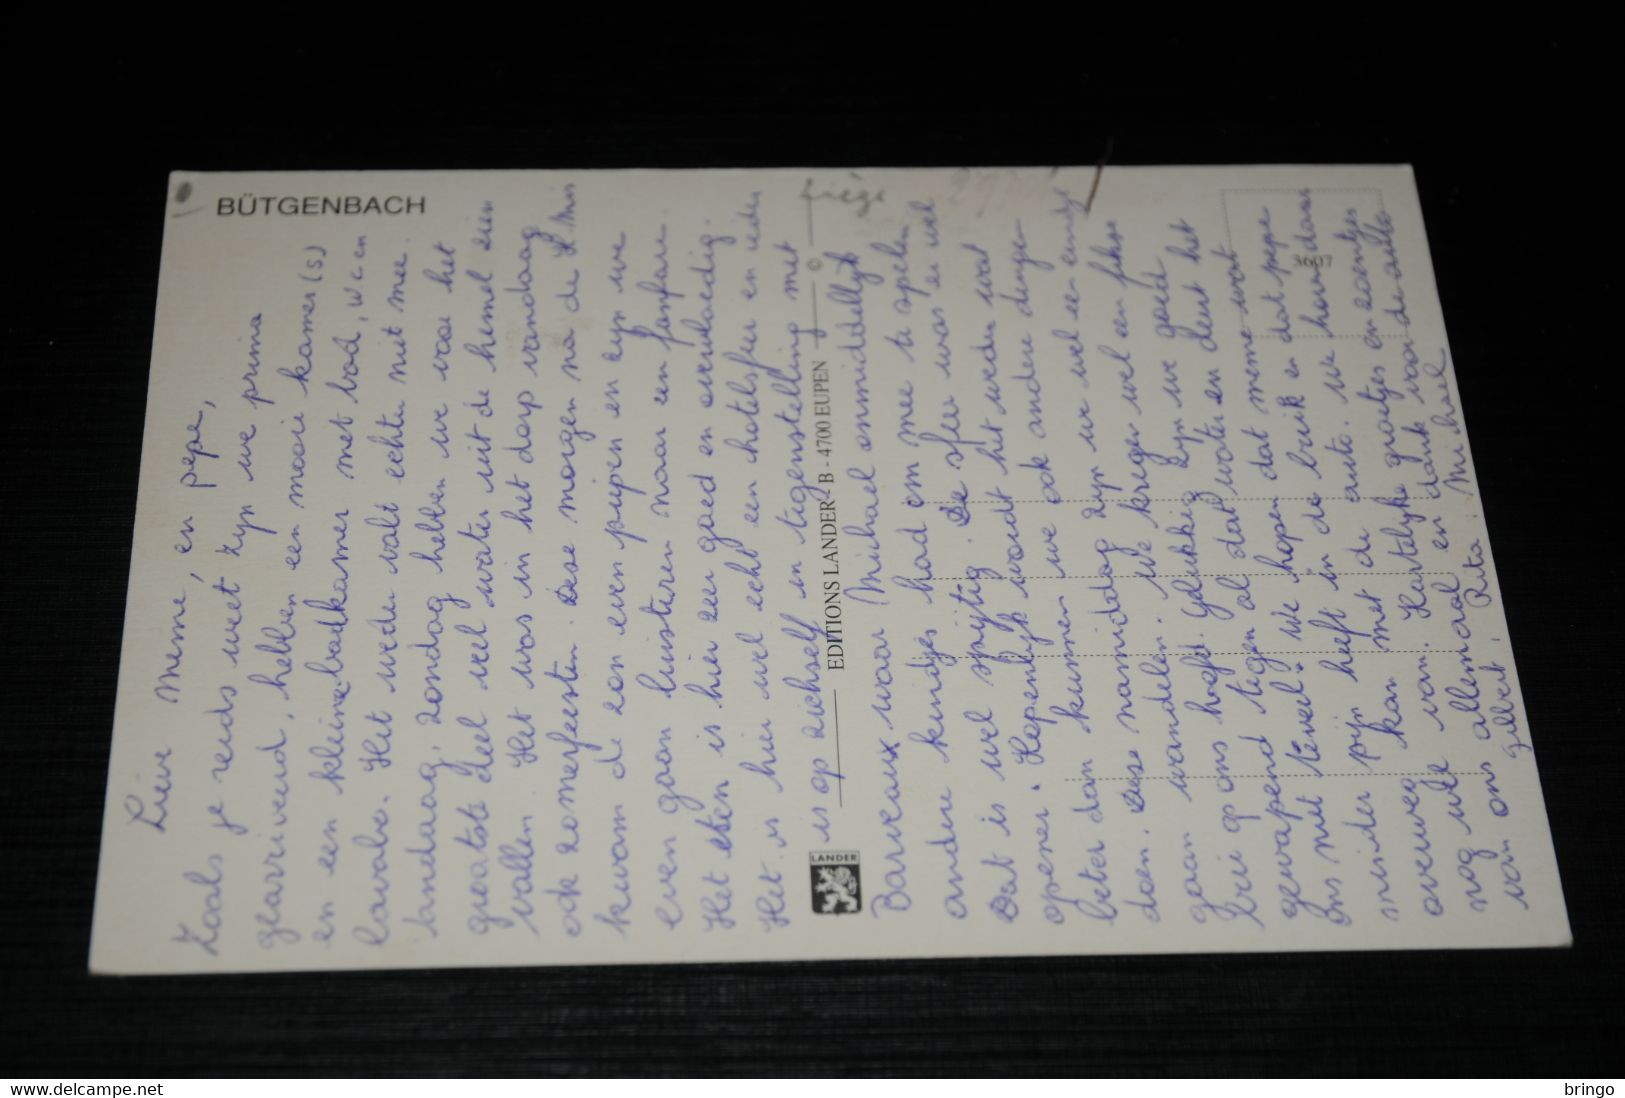 BÜTGENBACH
Liège
3607
© EDITIONS LANDER - B - 4700 EUPEN
LANDER
Lieve Meme, en pepe,
Zoals je reeds weet zijn we prima
gearriveerd, hebben een mooie kamer(s)
en een kleine badkamer met bad, w c en
lavabo. Het weder valt echter niet mee.
landaag, zondag hebben we voor het
grootste deel veel water uit de hemel zien
vallen. Het was in het dorp vandaag
ook zomerfeesten. Deze morgen na de H Mis
kwam de zon even piepen en zijn we
even gaan luisteren naar een fanfare.
Het eten is hier zeer goed en overvloedig.
Het is hier wel echt een hotelsfeer en ieder
is op zichzelf in tegenstelling met
Barveaux waar Michael onmiddellijk
andere kindjes had om mee te spelen
Dat is wel spijtig. De sfeer was er wel
opener. Hopenlijk wordt het weder wat
beter dan kunnen we ook andere dingen
doen. Deze namiddag zijn we wel een eindje
gaan wandelen. We kregen wel een fikse
bui op ons hoofd. Gelukkig zijn we goed
gewapend tegen al dat water en deert het
ons niet teveel! We hopen dat meme wat
minder pijn heeft in de buik en dat pepe
overweg kan met de auto. We houden
nog uit van. Hartelijke groetjes en zoentjes
van ons allemaal en dank voor de auto
Gilbert, Rita, Michael